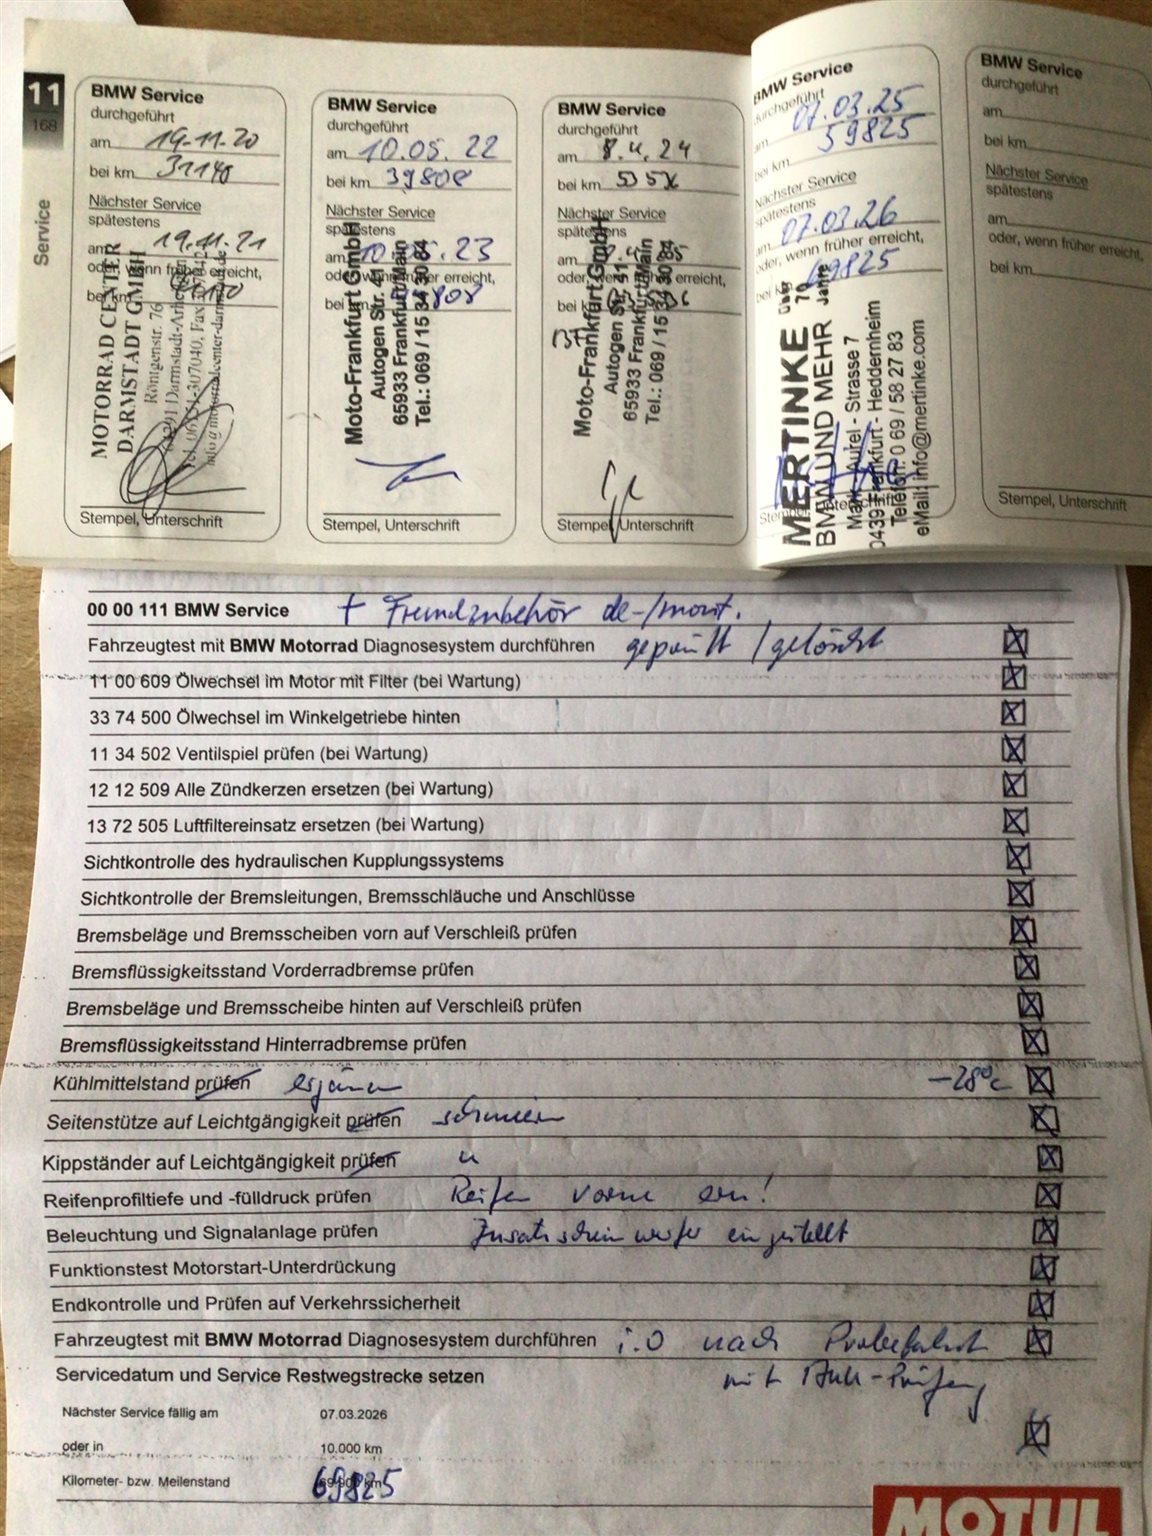 11
168
Service
BMW Service
durchgeführt
am 19.11.20
bei km 31140
Nächster Service
spätestens
am 19.11.21
oder, wenn früher erreicht,
bei km
MOTORRAD CENTER
DARMSTADT GMBH
Röntgenstr. 76
Stempel, Unterschrift
BMW Service
durchgeführt
am 10.05.22
bei km 39808
Nächster Service
spätestens
am 10.05.23
oder, wenn früher erreicht,
bei km
Moto-Frankfurt GmbH
Autogen Str. 41
65933 Frankfurt/Main
Tel.: 069 / 15 34 30 84
Stempel, Unterschrift
BMW Service
durchgeführt
am 8.4.24
bei km
Nächster Service
spätestens
am
oder, wenn früher erreicht,
bei km
Moto-Frankfurt GmbH
Autogen Str. 41
65933 Frankfurt/Main
Tel.: 069 / 15 34 30 84
Stempel, Unterschrift
BMW Service
durchgeführt
am 07.03.25
bei km 59825
Nächster Service
spätestens
am 07.03.26
oder, wenn früher erreicht,
bei km 69825
MERTINKE
über 70 Jahre
BMW UND MEHR
Mark - Aurel - Strasse 7
60439 Frankfurt - Heddernheim
Telefon: 0 69 / 58 27 83
eMail: info@mertinke.com
Stempel, Unterschrift
BMW Service
durchgeführt
am
bei km
Nächster Service
spätestens
am
oder, wenn früher erreicht,
bei km
Stempel, Unterschrift
00 00 111 BMW Service + Fremdzubehör de-/mont.
Fahrzeugtest mit BMW Motorrad Diagnosesystem durchführen geprüft / gelöscht
11 00 609 Ölwechsel im Motor mit Filter (bei Wartung)
33 74 500 Ölwechsel im Winkelgetriebe hinten
11 34 502 Ventilspiel prüfen (bei Wartung)
12 12 509 Alle Zündkerzen ersetzen (bei Wartung)
13 72 505 Luftfiltereinsatz ersetzen (bei Wartung)
Sichtkontrolle des hydraulischen Kupplungssystems
Sichtkontrolle der Bremsleitungen, Bremsschläuche und Anschlüsse
Bremsbeläge und Bremsscheiben vorn auf Verschleiß prüfen
Bremsflüssigkeitsstand Vorderradbremse prüfen
Bremsbeläge und Bremsscheibe hinten auf Verschleiß prüfen
Bremsflüssigkeitsstand Hinterradbremse prüfen
Kühlmittelstand prüfen ergänzen -28°C
Seitenstütze auf Leichtgängigkeit prüfen schmieren
Kippständer auf Leichtgängigkeit prüfen "
Reifenprofiltiefe und -fülldruck prüfen Reifen vorne ern!
Beleuchtung und Signalanlage prüfen Zusatzscheinwerfer eingestellt
Funktionstest Motorstart-Unterdrückung
Endkontrolle und Prüfen auf Verkehrssicherheit
Fahrzeugtest mit BMW Motorrad Diagnosesystem durchführen i.O nach Probefahrt
Servicedatum und Service Restwegstrecke setzen mit
Nächster Service fällig am 07.03.2026
oder in 10.000 km
Kilometer- bzw. Meilenstand 69825
MOTUL